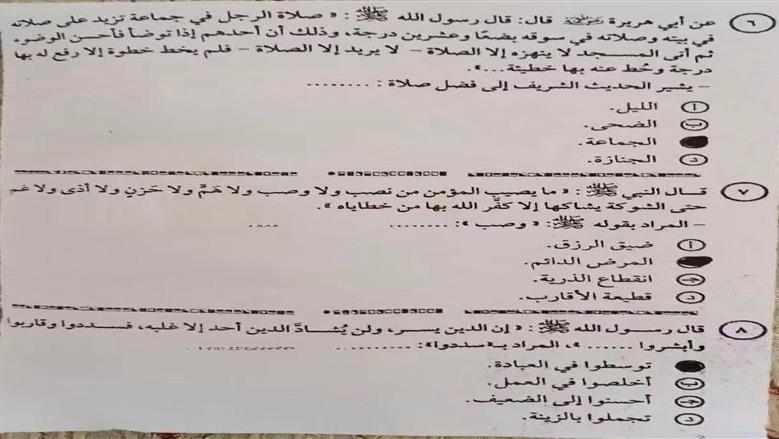 ٦ عن أبي هريرة رضي الله عنه قال: قال رسول الله ﷺ : « صلاة الرجل في جماعة تزيد على صلاته
في بيته وصلاته في سوقه بضعًا وعشرين درجة، وذلك أن أحدهم إذا توضأ فأحسن الوضوء
ثم أتى المسجد لا ينهزه إلا الصلاة - لا يريد إلا الصلاة - فلم يخط خطوة إلا رفع له بها
درجة وحُط عنه بها خطيئة...».
- يشير الحديث الشريف إلى فضل صلاة : ........
أ الليل.
ب الضحى.
الجماعة.
د الجنازة.
٧ قال النبي ﷺ : « ما يصيب المؤمن من نصب ولا وصب ولا همٍّ ولا حَزنٍ ولا أذى ولا غم
حتى الشوكة يشاكها إلا كفَّر الله بها من خطاياه ».
- المراد بقوله ﷺ: « وصب »: ........
أ ضيق الرزق.
المرض الدائم.
ج انقطاع الذرية.
د قطيعة الأقارب.
٨ قال رسول الله ﷺ : « إن الدين يسر، ولن يُشادَّ الدين أحد إلا غلبه، فسددوا وقاربوا
وأبشروا ......»، المراد بـ«سددوا»: ........
توسطوا في العبادة.
ب أخلصوا في العمل.
ج أحسنوا إلى الضعيف.
د تجملوا بالزينة.